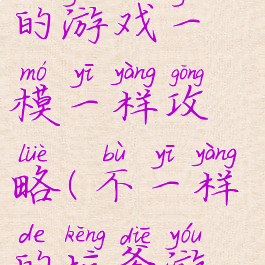 的游戏一
mó yī yàng gōng
模一样攻
lüè bù yī yàng
略(不一样
de kēng diē yóu
的坑爹游